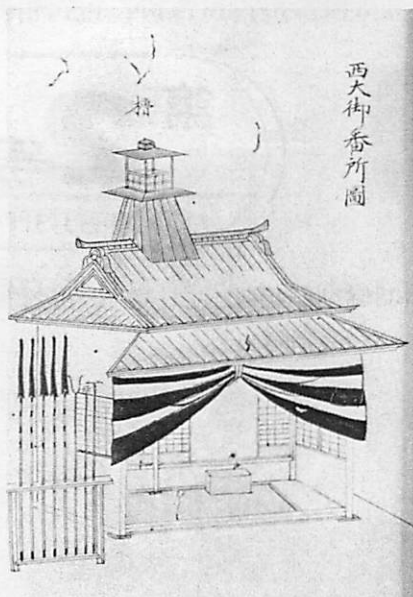 西大御番所圖
櫓